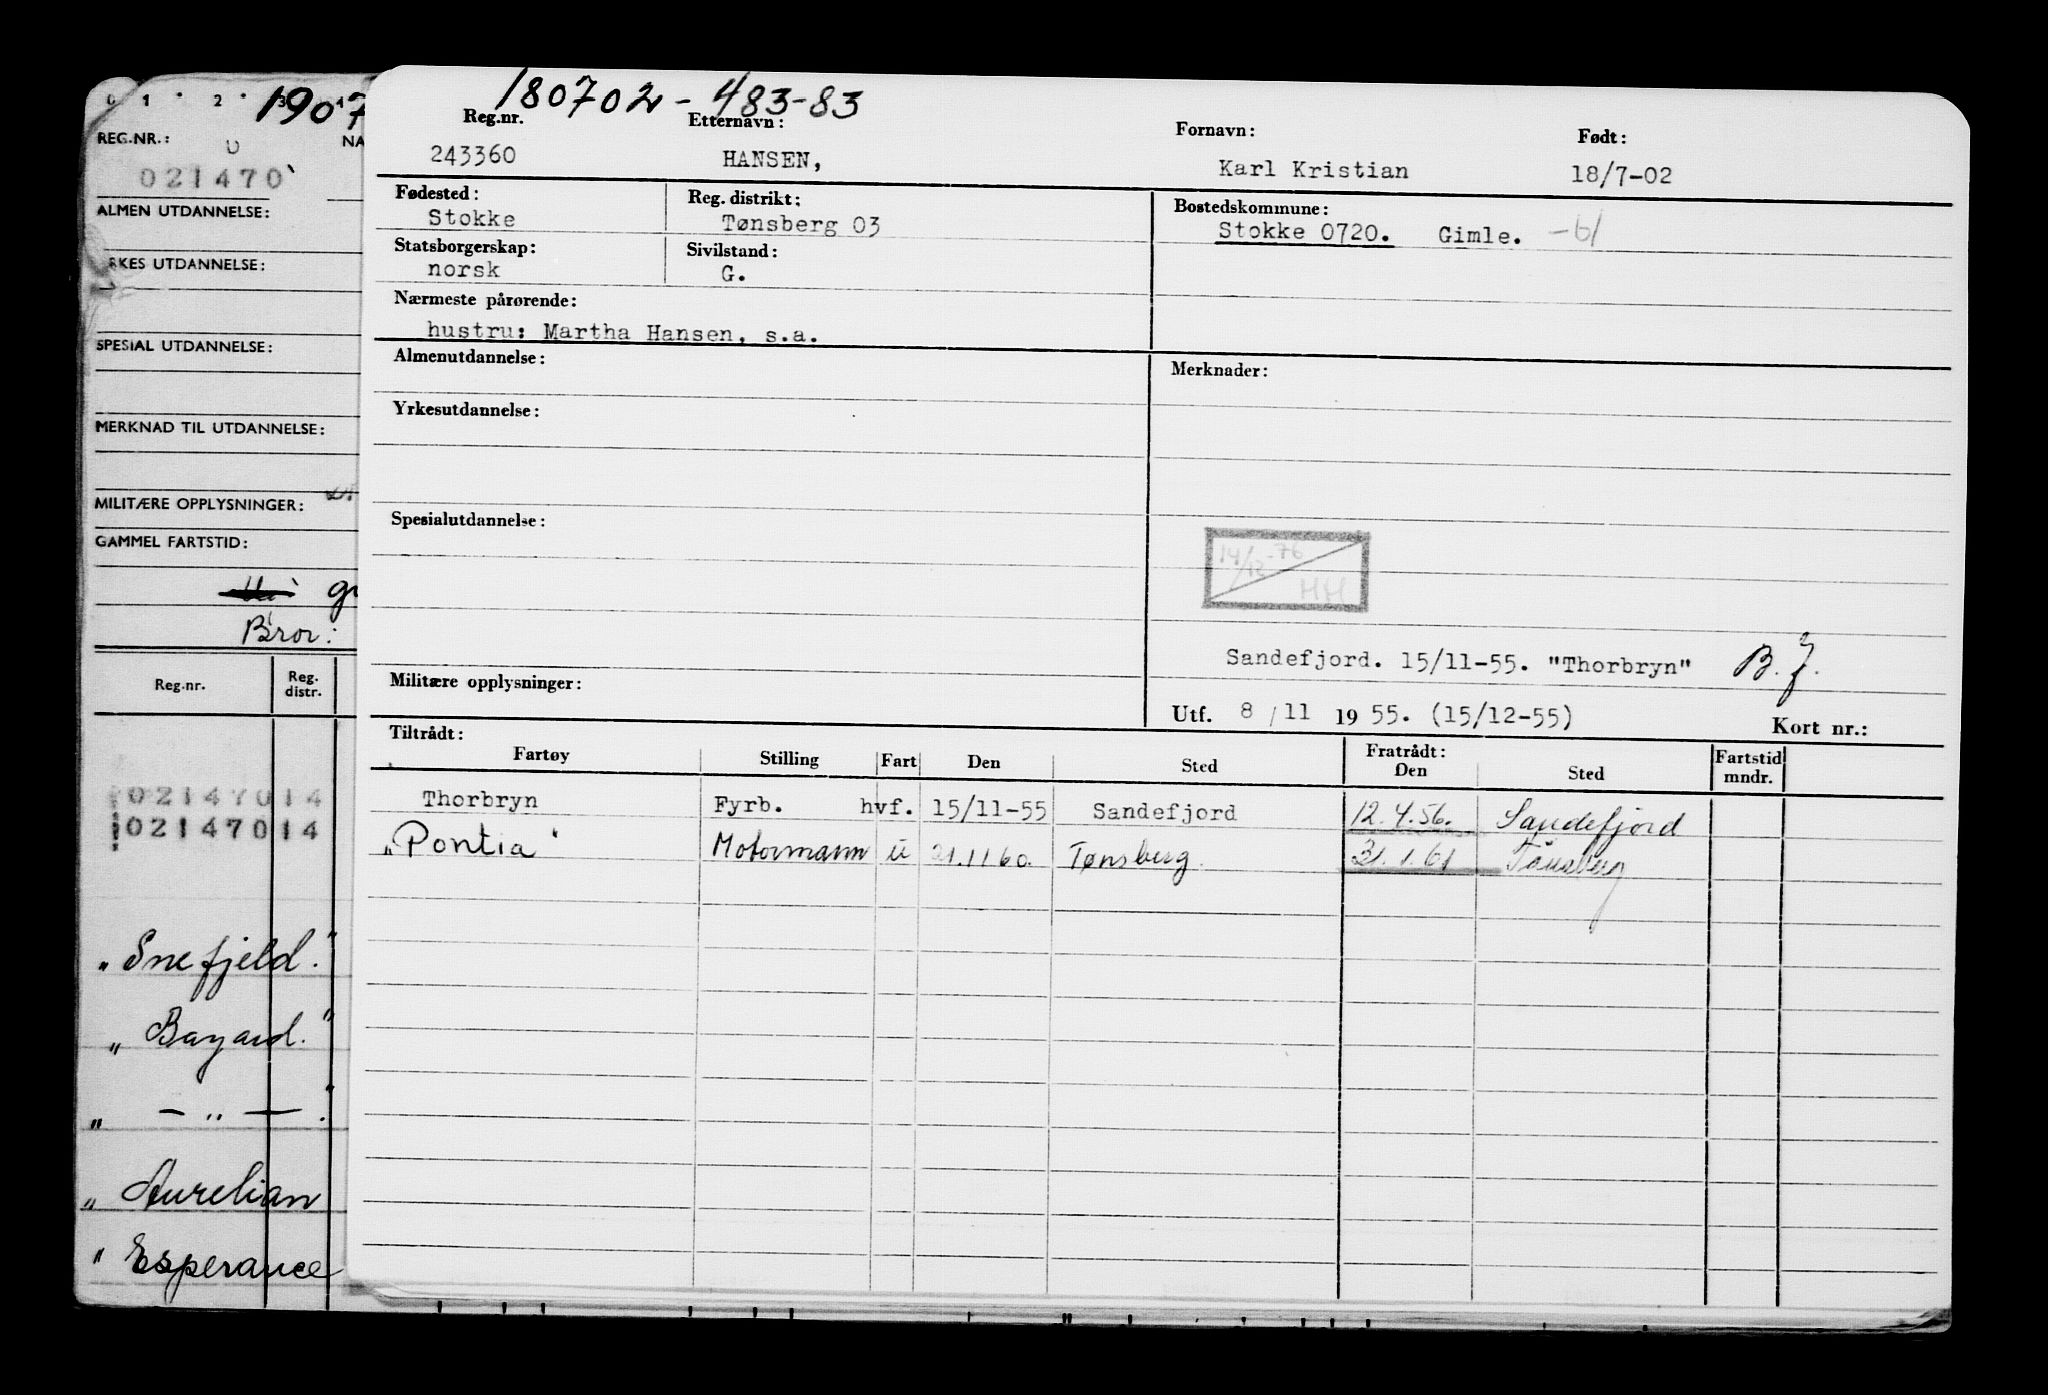 0 1 2 3 4
1907
REG.NR.: NA
021470
ALMEN UTDANNELSE:
RKES UTDANNELSE:
SPESIAL UTDANNELSE:
MERKNAD TIL UTDANNELSE:
MILITÆRE OPPLYSNINGER:
GAMMEL FARTSTID:
Bror:
Reg.nr. Reg. distr.
02147014
02147014
"Snefjeld."
"Bayard."
" — " — "
" Aurelian
" Esperance
180702-483-83
Reg.nr. Etternavn: Fornavn: Født:
243360 HANSEN, Karl Kristian 18/7-02
Fødested: Reg. distrikt: Bostedskommune:
Stokke Tønsberg 03 Stokke 0720. Gimle. -61
Statsborgerskap: Sivilstand:
norsk G.
Nærmeste pårørende:
hustru: Martha Hansen, s.a.
Almenutdannelse: Merknader:
Yrkesutdannelse:
Spesialutdannelse:
14/12-76
HH
Sandefjord. 15/11-55. "Thorbryn" B.J.
Militære opplysninger:
Utf. 8/11 1955. (15/12-55) Kort nr.:
Tiltrådt: Fratrådt:
Fartøy Stilling Fart Den Sted Den Sted Fartstid mndr.
Thorbryn Fyrb. hvf. 15/11-55 Sandefjord 12.4.56. Sandefjord
"Pontia" Motormann u 21.11 60. Tønsberg. 31.1.61 Tønsberg